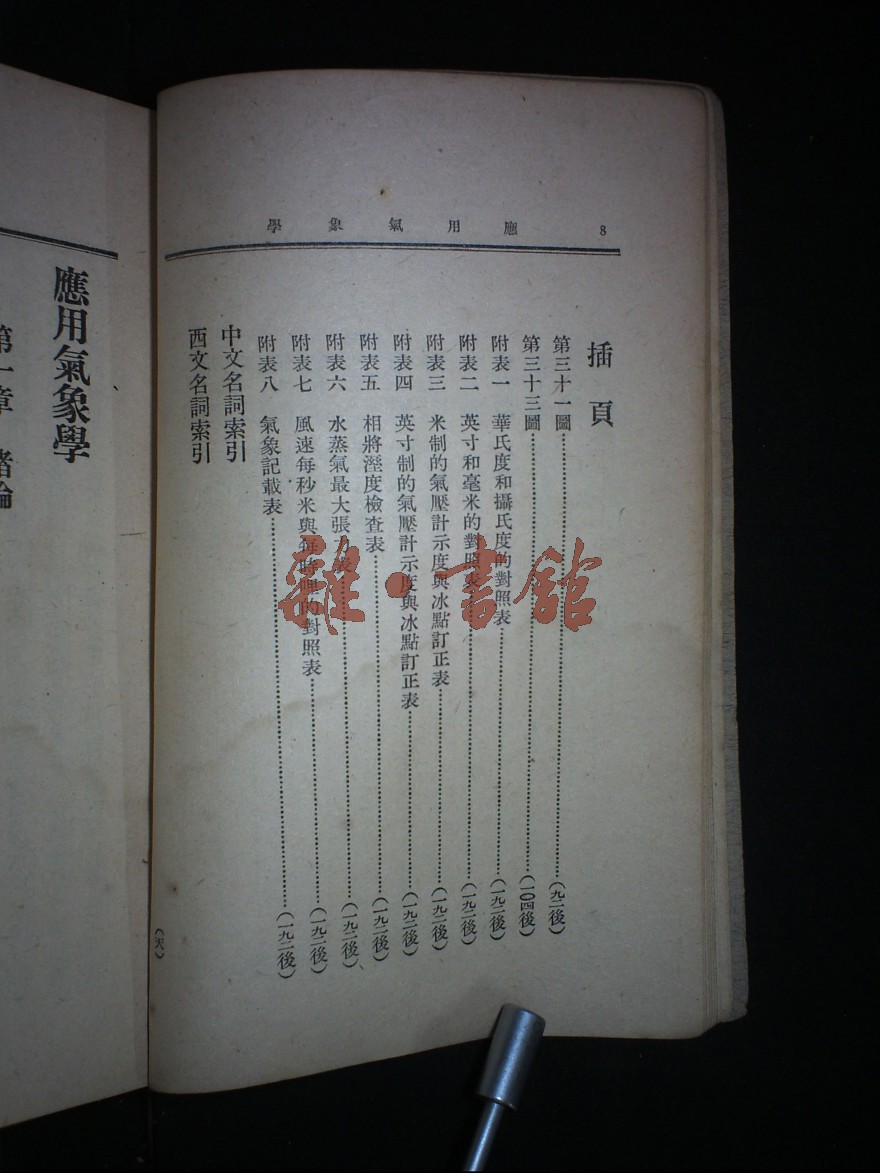 應用氣象學 8
插頁
第三十一圖……(九二後)
第三十三圖……(一〇四後)
附表一 華氏度和攝氏度的對照表……(一九二後)
附表二 英寸和毫米的對照表……(一九二後)
附表三 米制的氣壓計示度與冰點訂正表……(一九二後)
附表四 英寸制的氣壓計示度與冰點訂正表……(一九二後)
附表五 相將溼度檢查表……(一九二後)
附表六 水蒸氣最大張 表……(一九二後)
附表七 風速每秒米與每時哩的對照表……(一九二後)
附表八 氣象記載表……(一九二後)
中文名詞索引
西文名詞索引
應用氣象學
第一章 緒論
(天)
雜·書館